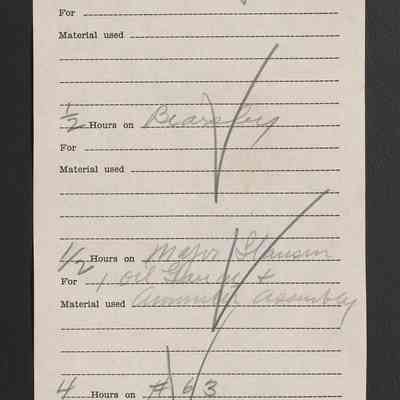 For
Material used
1/2 Hours on Beardsley
For
Material used
1/2 Hours on Major
For 1 oil Gauge &
Material used Ammeter Assembly
4 Hours on #63